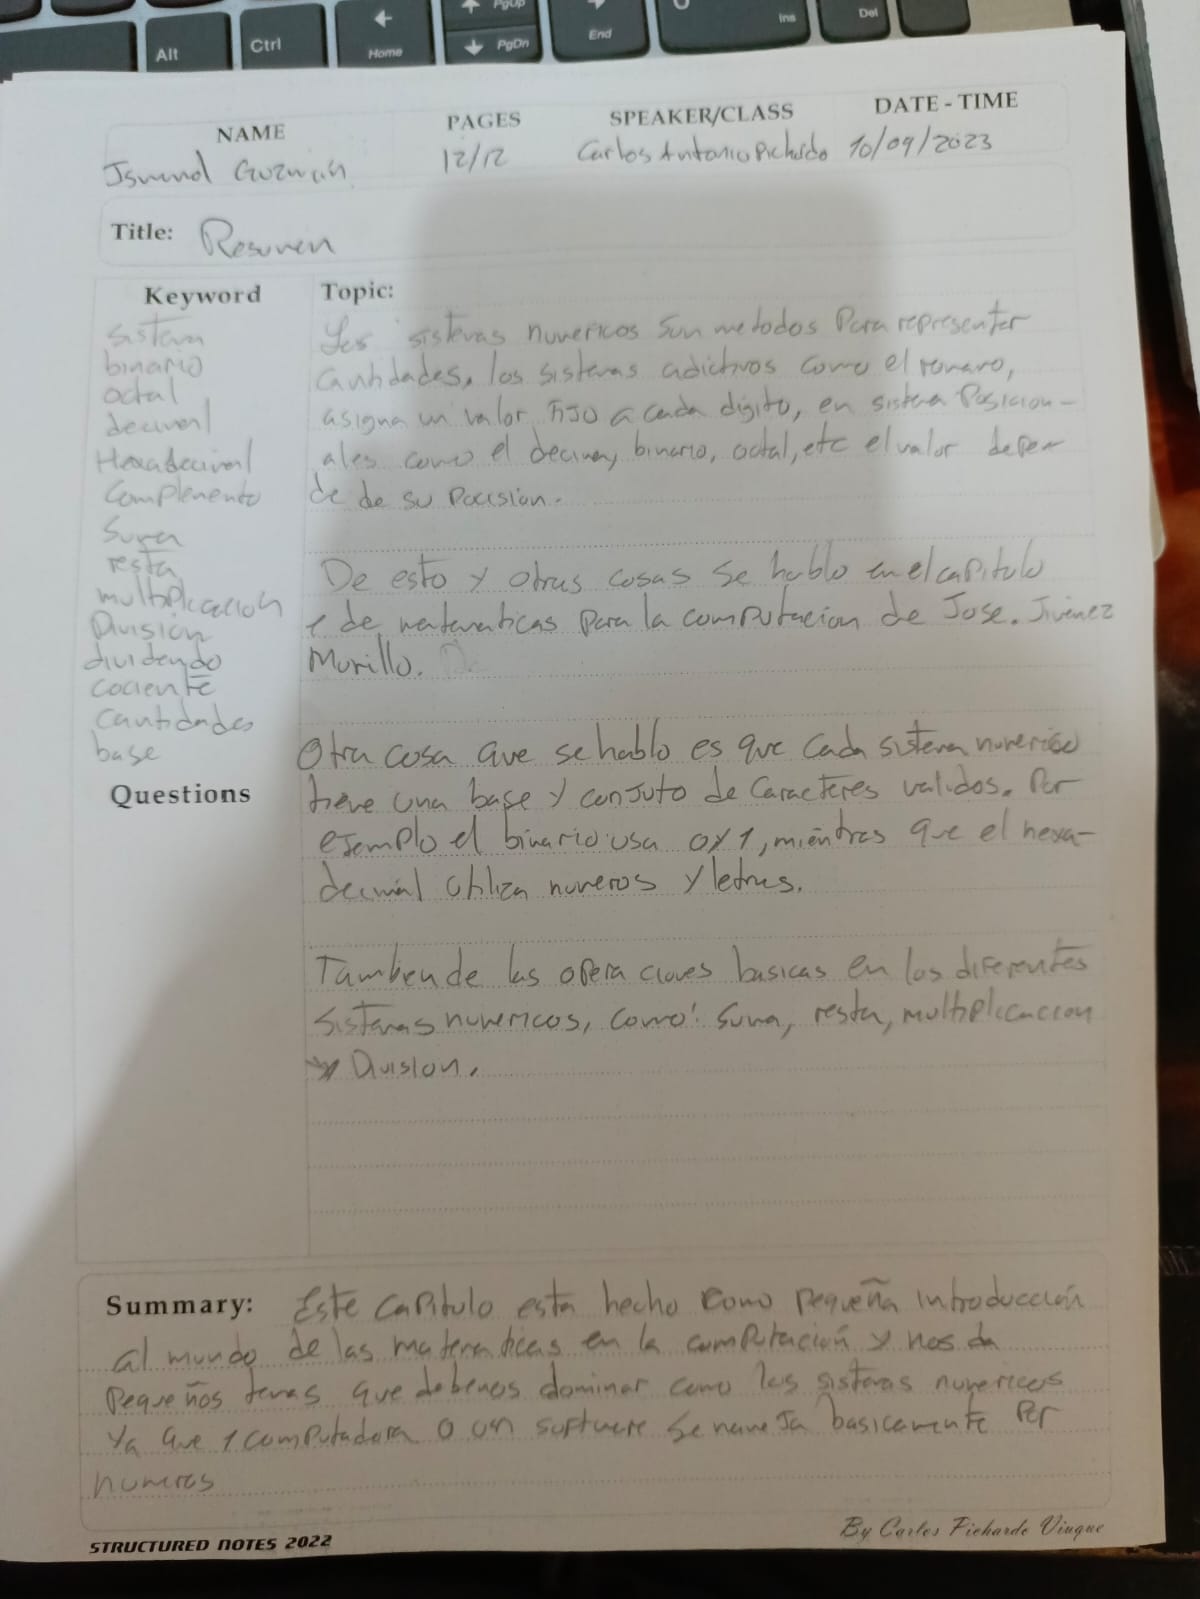 Alt
Ctrl
Home
PgUp
PgDn
End
Ins
Del
NAME
PAGES
SPEAKER/CLASS
DATE - TIME
Guzmán
12/12
Carlos Antonio Pichardo
10/09/2023
Title: Resumen
Keyword
Sistema
binario
octal
decimal
Hexadecimal
Complemento
Suma
resta
multiplicacion
Division
dividendo
cociente
Cantidades
base
Questions
Topic:
Los sistemas numericos son metodos Para representar
Cantidades, los sistemas adictivos como el romano,
asigna un valor fijo a cada digito, en sistema Posicion-
ales como el decimal, binario, octal, etc el valor depen
de de su
De esto y otras cosas se hablo en el capitulo
1 de matematicas para la computacion de Jose. Jimenez
Murillo.
Otra cosa que se hablo es que cada sistema numerico
tiene una base y conjuto de caracteres validos. Por
ejemplo el binario usa 0 y 1, mientras que el hexa-
decimal utiliza numeros y letras.
Tambien de las operaciones basicas en los diferentes
sistemas numericos, como: suma, resta, multiplicacion
y Division.
Summary: Este capitulo esta hecho como pequeña introducción
al mundo de las matematicas en la computación y nos da
pequeños temas que debemos dominar como los sistemas numericos
ya que 1 computadora o un software se maneja basicamente por
numeros
STRUCTURED NOTES 2022
By Carlos Pichardo Viuque